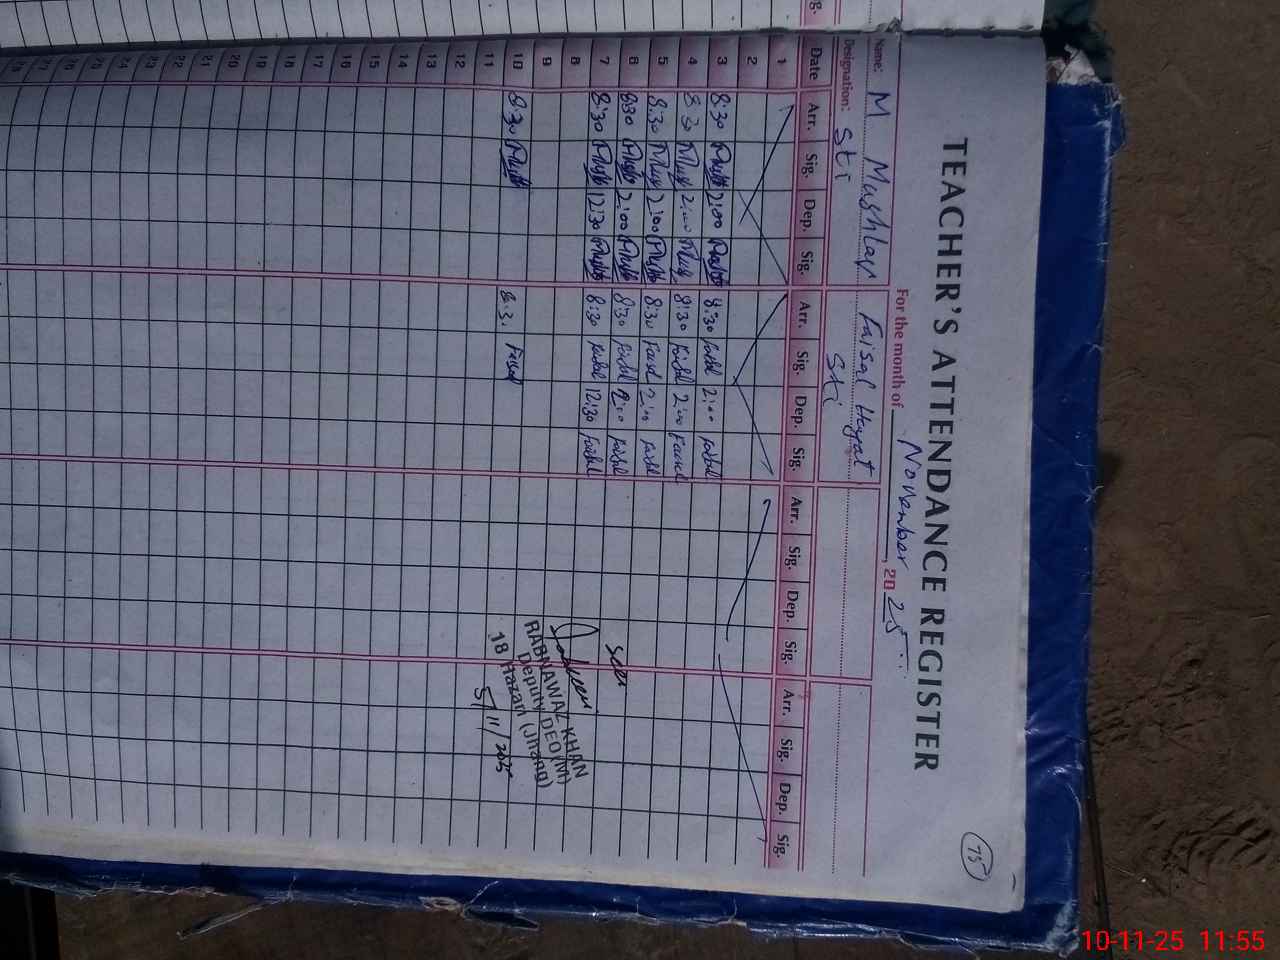 75
TEACHER'S ATTENDANCE REGISTER
For the month of November, 2025
Name: M Mushtaq Faisal Hayat
Designation: Sti Sti
Date Arr. Sig. Dep. Sig. Arr. Sig. Dep. Sig. Arr. Sig. Dep. Sig. Arr. Sig. Dep. Sig.
1
2
3 8:30 2:00 8:30 Faisal 2:00 Faisal
4 8:30 2:00 8:30 Faisal 2:00 Faisal
5 8:30 2:00 8:30 Faisal 2:00 Faisal
6 8:30 2:00 8:30 Faisal 2:00 Faisal
7 8:30 12:30 8:30 Faisal 12:30 Faisal
8
9
10 8:30 8:30 Faisal
11
12
13
14
15
16
17
18
19
20
21
22
23
24
25
26
27
28
Seen
RABNAWAZ KHAN
Deputy DEO (M)
18 Hazari (Jhang)
5/11/2025
10-11-25 11:55